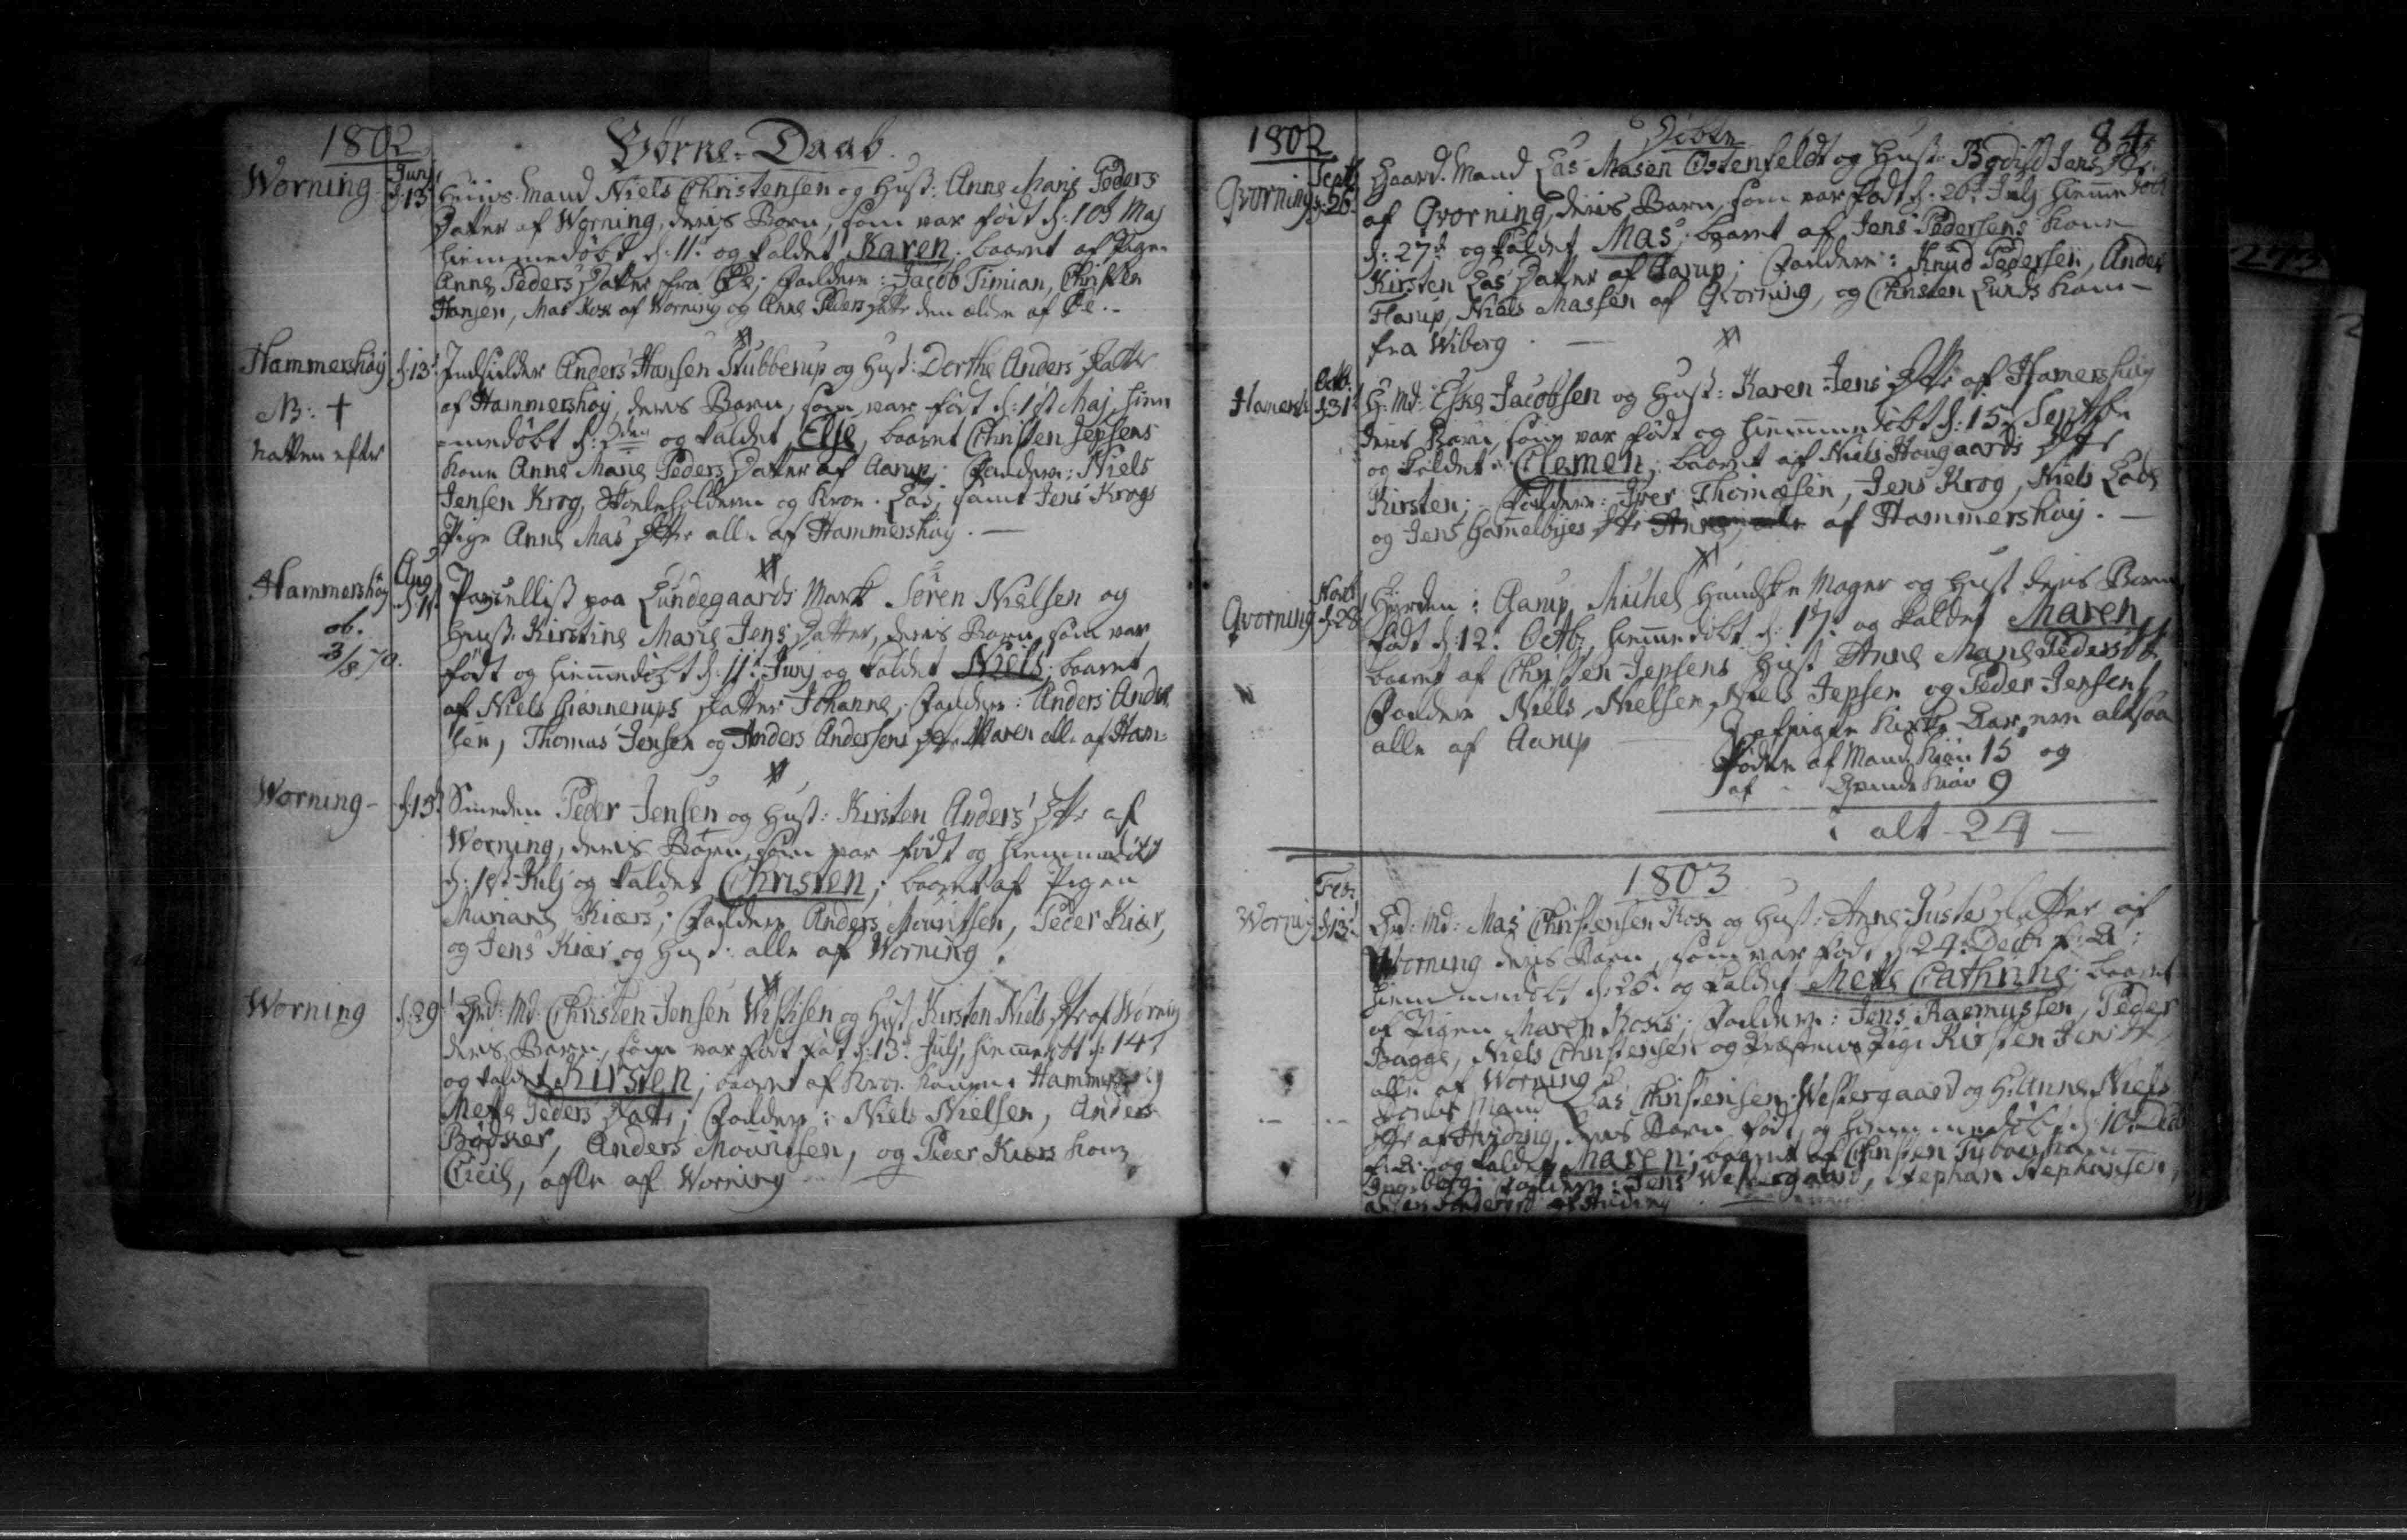 1802
Børne-Daab.
Worning Junj d: 13 Huus-Mand Niels Christensen og Hust: Anne Marie Peders
Datter af Worning, deres Barn, som var født d: 10d Maj
hiemmedøbt d: 11t og kaldet Karen, baaret af Pigen
Anne Peders Datter fra Øe; Faddere: Jacob Timian, Christen
Hansen, Mas Kox af Worning og Anne Peders Datter den ældre af Øe.
Hammershøy d: 13 Indsidder Anders Hansen Stubberup og Hust: Dorthe Anders Datter
NB: † af Hammershøy, deres Barn, som var født d: 1st Maj, hiem
natten efter =medøbt d: 2den og kaldet Else, baaret Christen Jepsens
kone Anne Marie Peders Datter af Aarup; Faddere: Niels
Jensen Krog, og Kroe-Las, samt Jens Krogs
Pige Anne Mas Dtr alle af Hammershøy.
Hammershøy Aug Parcellist paa Lundegaards Mark Søren Nielsen og
ob. Hust: Kirstine Marie Jens Datter, deres Barn, som var
3/8 70. født og hiemmedøbt d: 11t Junj og kaldet Niels, baaret
af Niels Giannerups Datter Johanne, Faddere: Anders Ander
sen, Thomas Jensen og Anders Andersens Dtr Maren alle af Ham=
Worning d: 15 Smeden Peder Jensen og Hust: Kirsten Anders Dtr af
Worning, deres Barn, som var født og hiemmedøbt
d: 1st Julj og kaldet Christen; baaret af Pigen
Mariane Kiærs; Faddere Anders Mouritsen, Peder Kiær,
og Jens Kiær og Hust: alle af Worning.
Worning d: 29 Grd: Md: Christen Jensen Westisen og Hust Kirsten Niels Dtr af Worning
deres Barn, som var født d: 13 Julj, hiemmedøbt d: 14
og kaldet Kirsten; baaret af Kroe konen i Hammershøy
Mette Peders Datter; Faddere: Niels Nielsen, Anders
Bødker, Anders Mouritsen, og Peder Kiærs kone
Cicil, alle af Worning
1802
Døbte
84
Qvorning Septb d: 26 Gaard-Mand Las Masen Ostenfeldt og Hust: Bodild Jens Dtr
af Qvorning, deres Barn, som var født d: 26t Julj hiemmedøbt
d: 27d og kaldet Mas, baaret af Jens Pedersens kone
Kirsten Las Datter af Aarup; Faddere: Knud Pedersen, Anders
Flarup, Niels Massen af Qvorning, og Christen Lunds kone
fra Wiborg.
Hamersh Octb. d: 31 G: Md: Eske Jacobsen og Hust: Karen Jens Dtr af Hamershøy
deres Barn, som var født og hiemmedøbt d: 15 Septbr
og kaldet Clemen, baaret af Niels Hougaards Dtr
Kirsten; Faddere: Iver Thomæsen, Jens Krog, Niels
og Jens Gamelbyes Dtr Anne, alle af Hammershøy.
Qvorning Novb d: 28 Hyrden i Aarup Michel Handske Mager og Hust deres Barn
født d: 12. Octb, hiemmedøbt d: 17 og kaldet Maren
baaret af Christen Jepsens Hust Anne Marie Peders Dtr
Faddere Niels Nielsen, Niels Jepsen og Peder Jensen
alle af Aarup
I afvigte Kirke Aar ere altsaa
Fødte af Mandkiøn 15 og
af Qvindekiøn 9
i alt 24
1803
Worning Feb: d: 13 Grd: Md: Mas Christensen Kox og Hust: Anne Justes Datter af
Worning deres Barn, som var født d: 24. Decb f: A:
hiemmedøbt d: 26. og kaldet Mette Cathrine, baaret
af Pigen Maren Koxes; Faddere: Jens Rasmussen, Peder
Bagge, Niels Christensen og Præstens Pige Kirsten Jens Dtr
alle af Worning
Mand Las Christensen Westergaard og H: Anne Niels
Dtr af Hvidding, deres Barn født og hiemmedøbt d: 10. Decb
f: A: og kaldet Maren; baaret af Christen
Faddere: Jens Westergaard, Stephan Stephansen,
af Hvidding